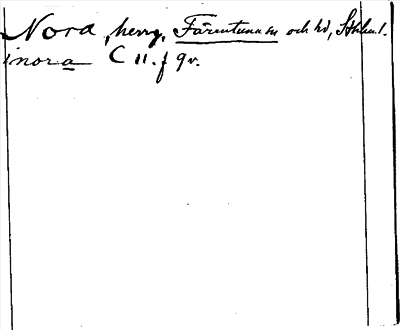 Nora, herrg, Färentuna sn och hd, Sthlms l.
i nora C 11. f 9v.